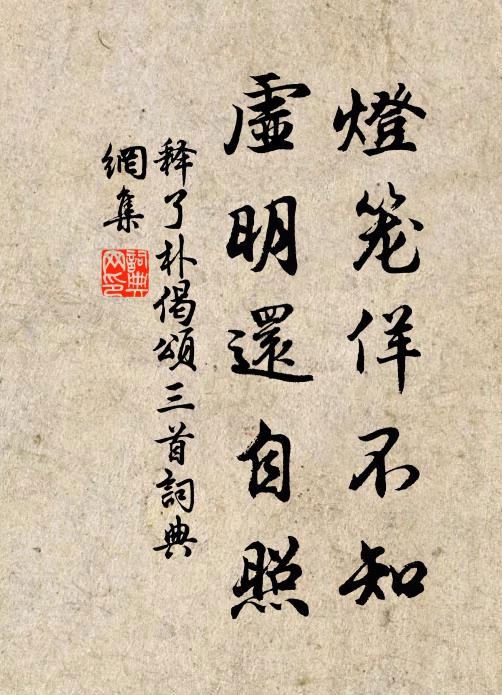 燈笼佯不知
虛明還自照
释了朴偈頌三首詞典
網集
詞典網印